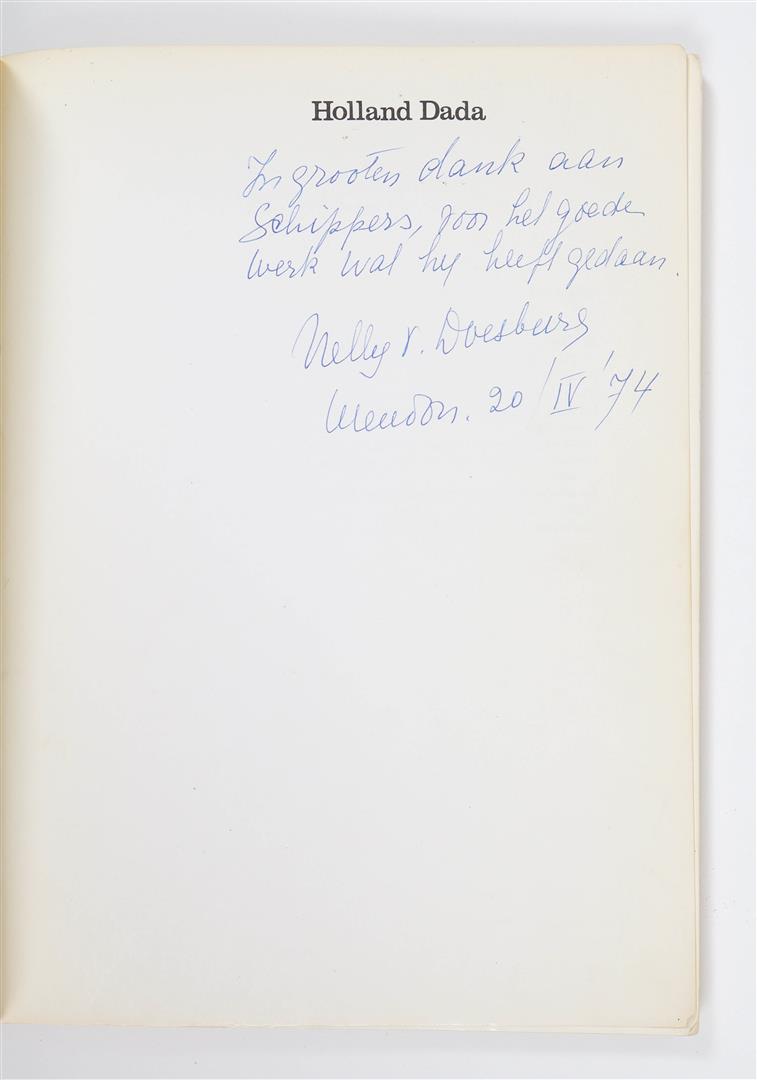 Holland Dada
In grooten dank aan
Schippers, voor het goede
werk wat hy heeft gedaan.
Nelly v. Doesburg
Meudon. 20/IV/74